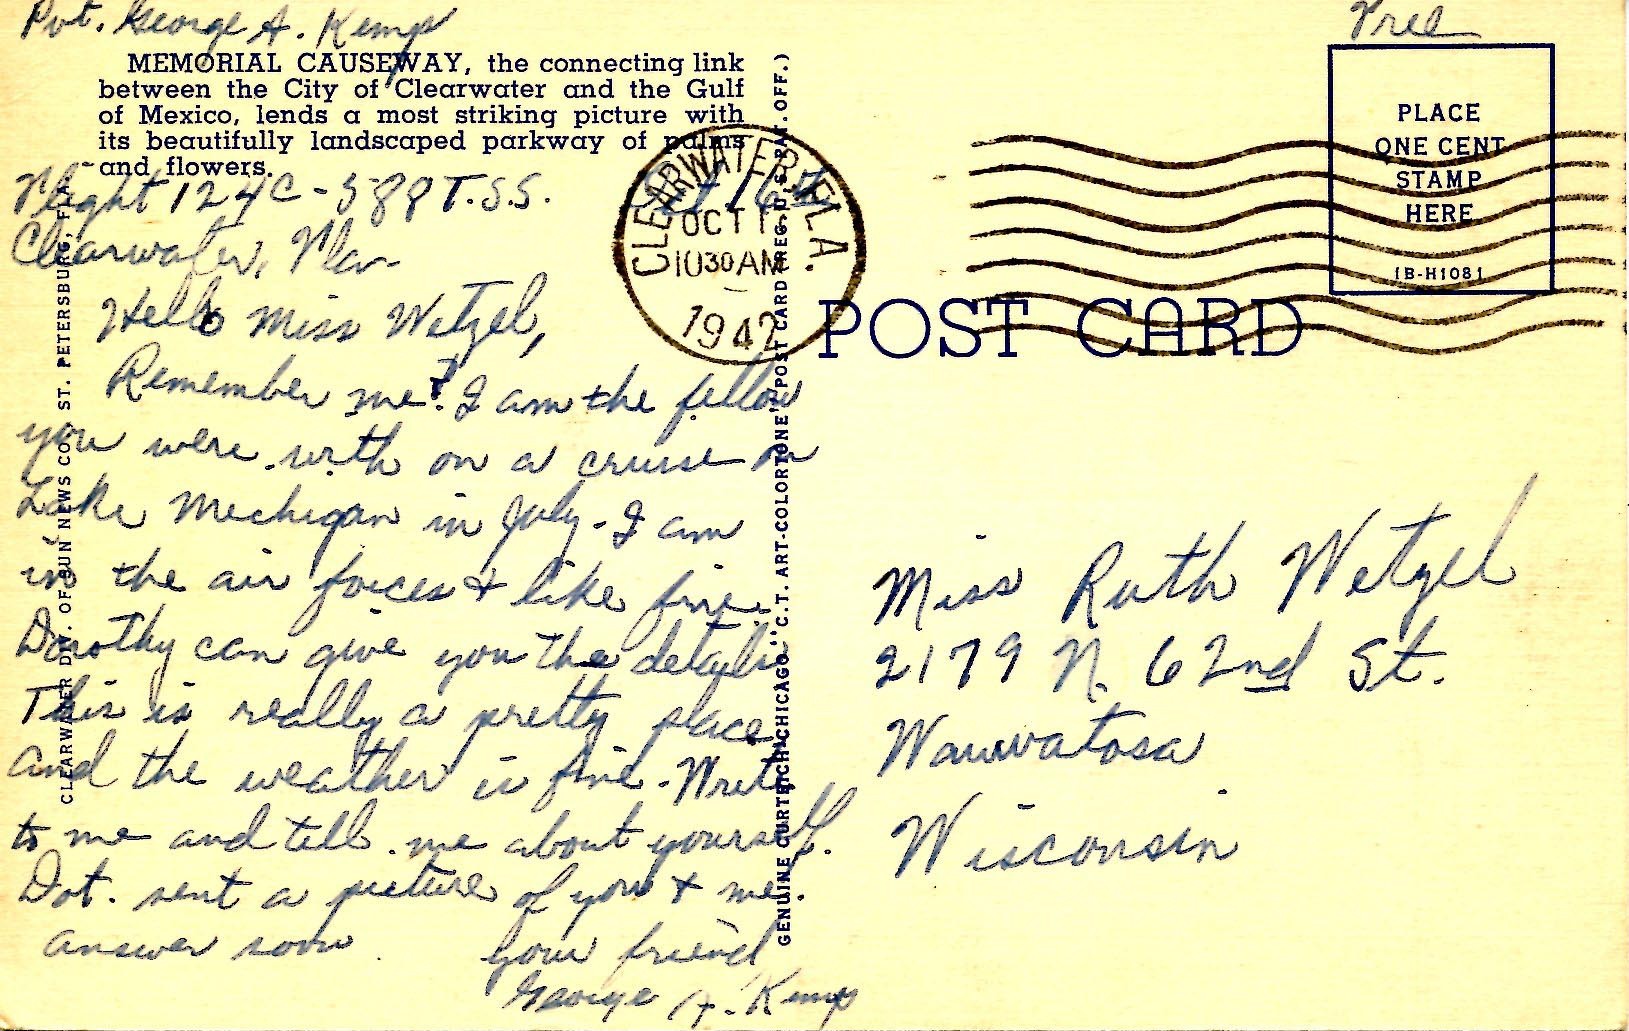 Pvt. George A. Kemp
Free
MEMORIAL CAUSEWAY, the connecting link
between the City of Clearwater and the Gulf
of Mexico, lends a most striking picture with
its beautifully landscaped parkway of palms
and flowers.
Flight 124C - 588 T.S.S.
Oct 16th
Clearwater, Fla-
Hello Miss Wetzel,
Remember me? I am the fellow
you were with on a cruise on
Lake Michigan in July - I am
in the air forces & like fine.
Dorothy can give you the details
This is really a pretty place
and the weather is fine. Write
to me and tell me about yourself.
Dot. sent a picture of you & me.
answer soon
Your friend
George A. Kemp
CLEARWATER, FLA.
OCT 1
1030 AM
1942
PLACE
ONE CENT
STAMP
HERE
1B-H1081
POST CARD
Miss Ruth Wetzel
2179 N. 62nd St.
Wauwatosa
Wisconsin
CLEARWATER DIV. OF SUN NEWS CO., ST. PETERSBURG, FLA.
GENUINE CURTEICH-CHICAGO "C.T. ART-COLORTONE" POST CARD (REG. U.S. PAT. OFF.)